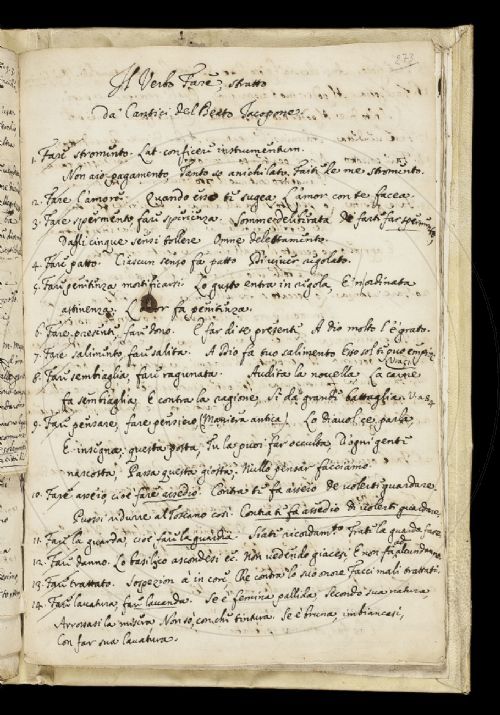 273
Il Verbo Fare, stratto
da Cantici del Beato Iacopone
1. Fare stromento. Lat. conficere instrumentum.
Non aio pagamento Tanto so anichilato. Faite le me stromento.
2. Fare l'amore. Quando ene ti sugea L'amor con te facea.
3. Fare spermento fare sperienza. Somme deliberata de farte far spermento,
Dalli cinque sensi tollere Omne delettamento.
4. Fare patto. Ciascun senso fa patto Di viver regolato.
5. Fare penitenza mortificarsi. Lo gusto entra in regola, E n'ordinata
astinenza. L'odor fa penitenza.
6. Fare presente, fare dono. E far di te presente A Dio molto l'è grato.
7. Fare salimento, fare salita. A Dio fa tuo salimento Esso sol ti può empire
8. Fare sembiaglia, fare ragunata. Audita la novella La carne
fa sembiaglia E contra la ragione, Si dà grande battaglia.
9. Fare pensare, fare pensiero (Maniera antica). Lo diavol ce parla
E insigna questa posta, Tu la puoi far occulta, Dogni gente
nascosta, Passa questa giosta, Nullo pensar facciamo
10. Fare aseio cioè fare assedio. Contra te fa aseio de volerti guardare
Puossi ridurre al Toscano così. Contra ti fa assedio di volerti guardare
11. Fare la guarda, cioè fare la guardia. Siati ricordamto Frate la guarda fare
12. Fare danno. Lo basilisco ascondesi ec. Non vedendo giacesi E non fa ad alcun danno
13. Fare trattato. Sospezon a in core Che contra lo suo onore Facci mali trattati.
14. Fare lavatura, fare lavanda. Se è femina pallida, Secondo sua natura
Arrossasi la misera Non so, con che tintura. Se è bruna imbiancasi,
Con far sua lavatura.